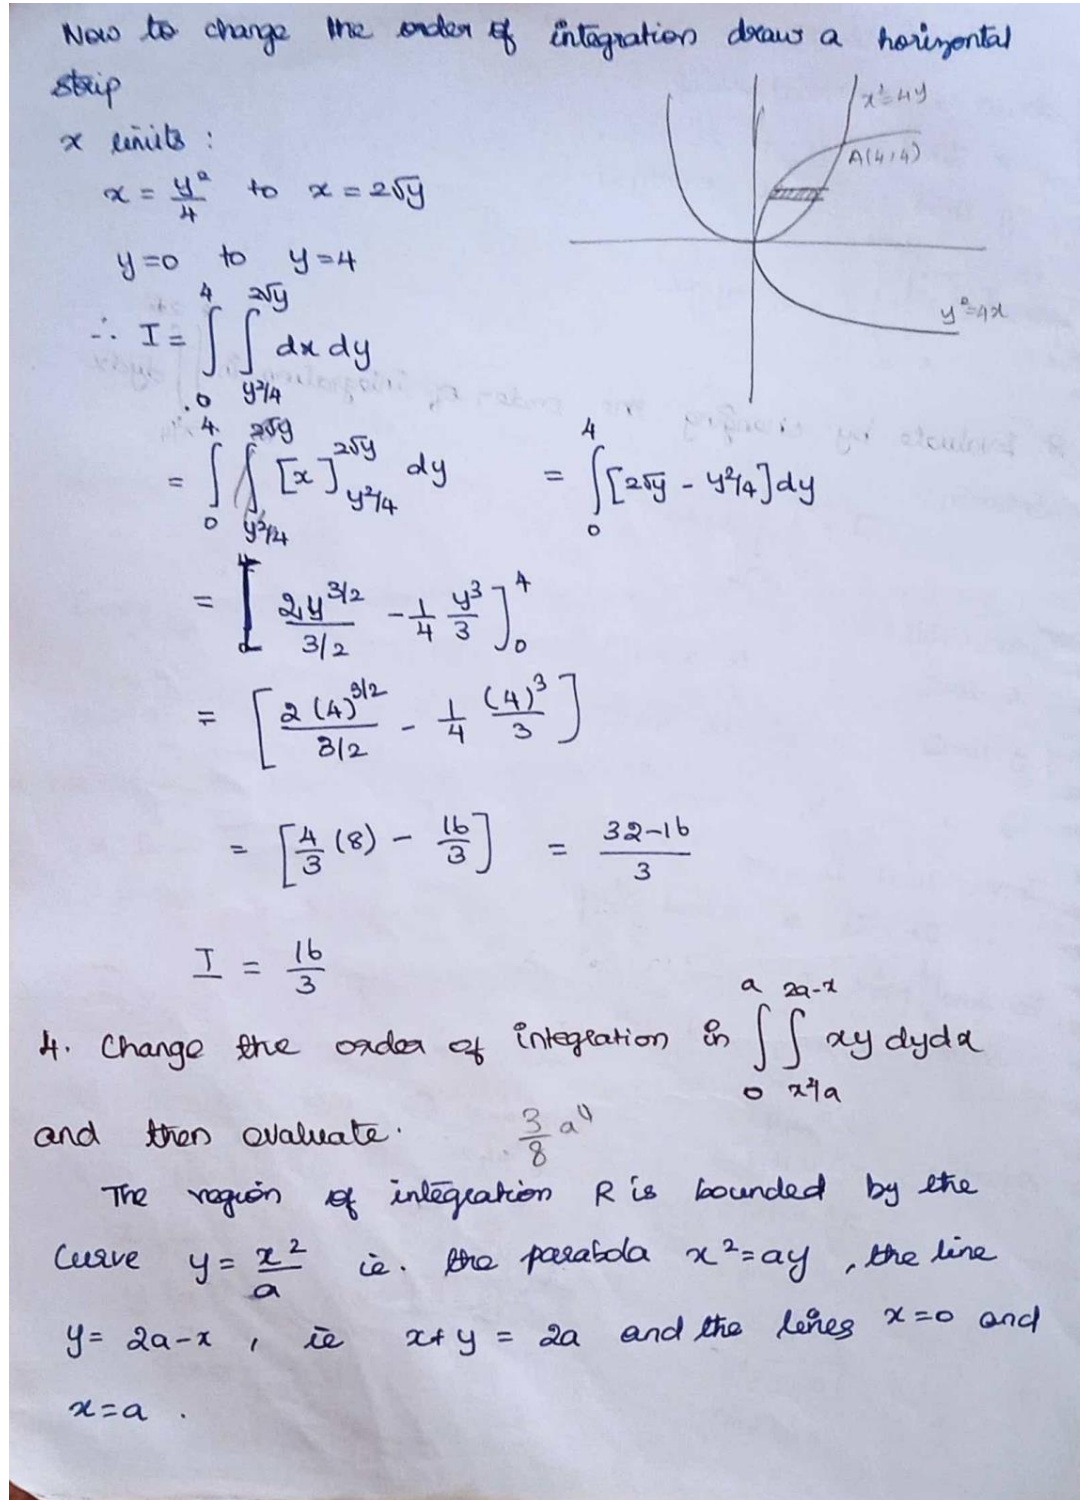 Now to change the order of integration draw a horizontal
strip
x limits :
x = y²/4 to x = 2√y
y=0 to y=4
x²=4y
A(4,4)
y²=4x
∴ I = ∫₀⁴ ∫_{y²/4}^{2√y} dx dy
= ∫₀⁴ [x]_{y²/4}^{2√y} dy = ∫₀⁴ [2√y - y²/4] dy
= [ 2y^{3/2}/(3/2) - 1/4 y³/3 ]₀⁴
= [ 2(4)^{3/2}/(3/2) - 1/4 (4)³/3 ]
= [ 4/3 (8) - 16/3 ] = (32-16)/3
I = 16/3
4. Change the order of integration in ∫₀^a ∫_{x²/a}^{2a-x} xy dy dx
and then evaluate. 3/8 a⁴
The region of integration R is bounded by the
curve y = x²/a ie. the parabola x²=ay, the line
y= 2a-x, ie x+y = 2a and the lines x=0 and
x=a .